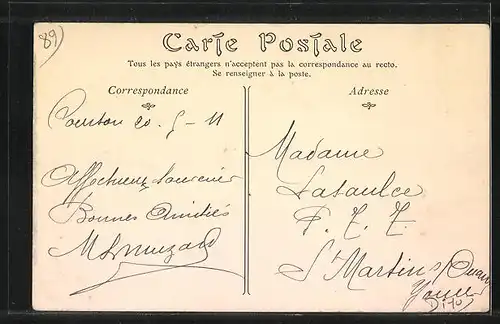 89
Carte Postale
Tous les pays étrangers n'acceptent pas la correspondance au recto.
Se renseigner à la poste.
Correspondance
20 - 5 - 11
Affectueux souvenir
Bonnes Amitiés
Adresse
Madame
Lasaulce
P. T. T.
St Martin s/ Ouanne
Yonne